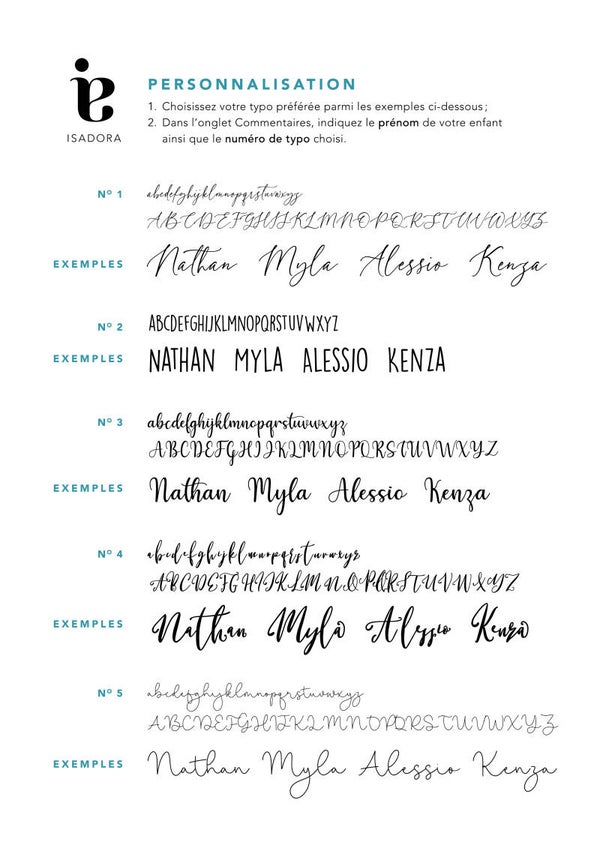 ie
ISADORA
PERSONNALISATION
1. Choisissez votre typo préférée parmi les exemples ci-dessous ;
2. Dans l'onglet Commentaires, indiquez le prénom de votre enfant
ainsi que le numéro de typo choisi.
Nº 1
abcdefghijklmnopqrstuvwxyz
ABCDEFGHIJKLMNOPQRSTUVWXYZ
EXEMPLES Nathan Myla Alessio Kenza
Nº 2 ABCDEFGHIJKLMNOPQRSTUVWXYZ
EXEMPLES NATHAN MYLA ALESSIO KENZA
Nº 3 abcdefghijklmnopqrstuvwxyz
ABCDEFGHIJKLMNOPQRSTUVWXYZ
EXEMPLES Nathan Myla Alessio Kenza
Nº 4 abcdefghijklmnopqrstuvwxyz
ABCDEFGHIJKLMNOPQRSTUVWXYZ
EXEMPLES Nathan Myla Alessio Kenza
Nº 5 abcdefghijklmnopqrstuvwxyz
ABCDEFGHIJKLMNOPQRSTUVWXYZ
EXEMPLES Nathan Myla Alessio Kenza